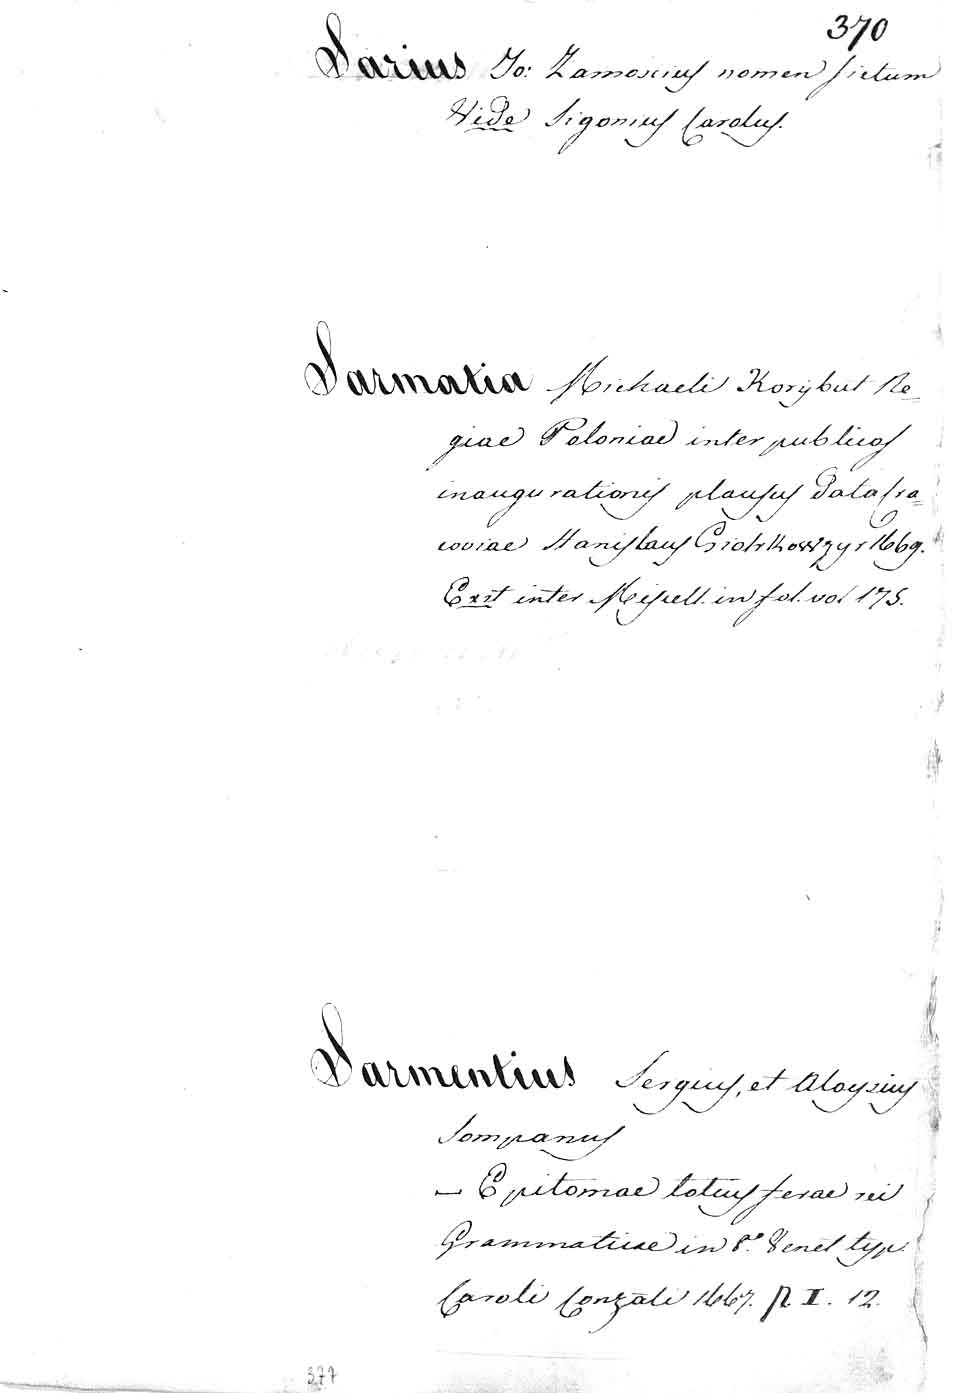 370
Sarius Jo: Zamoscius nomen fictum
Vide Sigonius Carolus.
Sarmatia Michaeli Korybut Re=
giae Poloniae inter publicos
inaugurationis plausus data Cra=
coviae Stanislaus 1669.
Exst inter Miscell. in fol. vol 175.
Sarmentius Sergius, et Aloysius
Sompanus
— Epitomae totius ferae rei
Grammaticae in 8.º Venet typ.
Caroli Conzali 1667. R. I. 12.
377